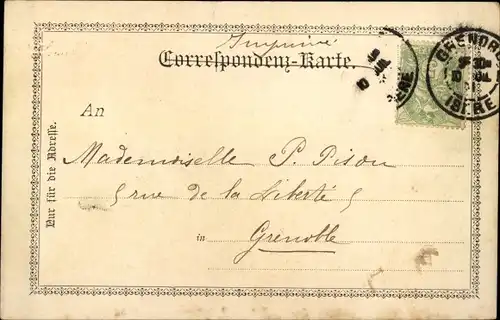 Imprimé
Correspondenz-Karte.
GRENOBLE
ISERE
An
Mademoiselle P. Pison
5 rue de la Liberté 5
in Grenoble
Nur für die Adresse.